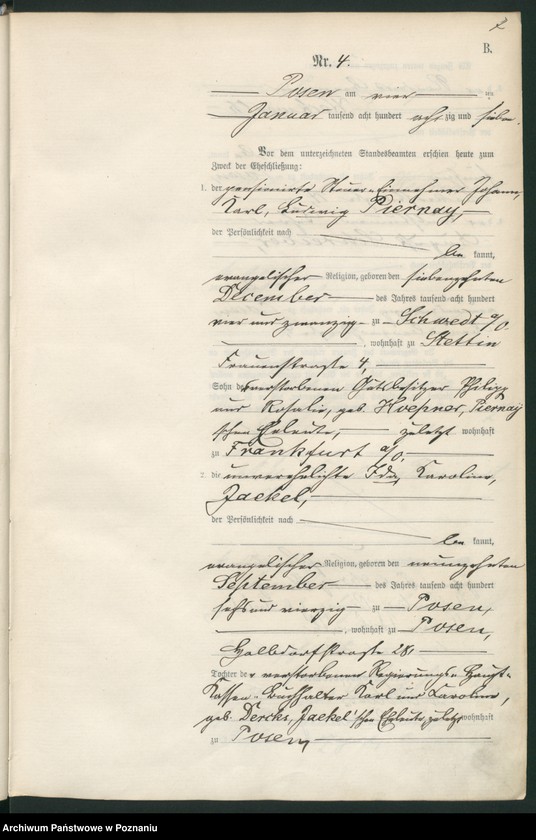 B.
Nr. 4.
Posen am vier ten
Januar tausend acht hundert achtzig und sieben.
Vor dem unterzeichneten Standesbeamten erschien heute zum
Zweck der Eheschließung:
1. der pensionirte Steuer-Einnehmer Johann,
Karl, Ludwig Piernay,
der Persönlichkeit nach
be kannt,
evangelischer Religion, geboren den siebenzehnten
December des Jahres tausend acht hundert
vier und zwanzig zu Schwedt a/O.
, wohnhaft zu Stettin
Frauenstraße 4,
Sohn des verstorbenen Gutsbesitzer Philipp
und Rosalie, geb. Hoepner, Piernay
'schen Eheleute, zuletzt wohnhaft
zu Frankfurt a/O.
2. die unverehelichte Ida, Karoline,
Jaekel,
der Persönlichkeit nach
be kannt,
evangelischer Religion, geboren den neunzehnten
September des Jahres tausend acht hundert
sechs und vierzig zu Posen,
, wohnhaft zu Posen,
Halbdorfstraße 28,
Tochter der verstorbenen Regierungs-Haupt-
Kassen-Buchhalter Karl und Karoline,
geb. Dercks, Jaekel'schen Eheleute, zuletzt wohnhaft
zu Posen,
Archiwum Państwowe w Poznaniu